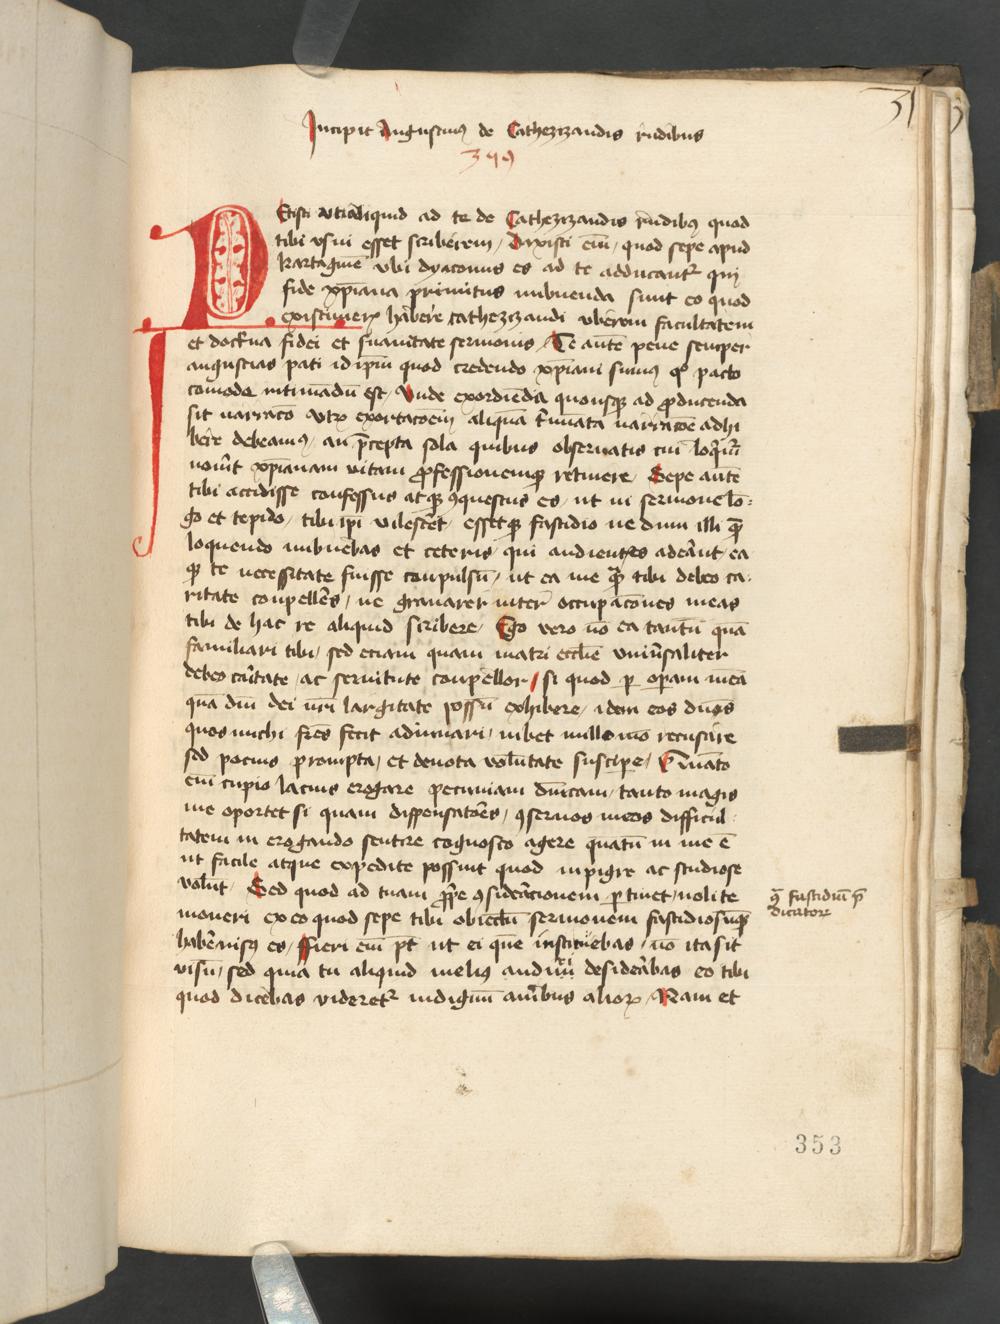 31
Incipit Augustinus de Cathezizandis rudibus
399
PEtisti ut aliquid ad te de Cathezizandis rudibꝰ quod
tibi usui esset scriberem / Dixisti em̄ / quod sepe apud
kartaginē ubi dyaconus es ad te adducantᷣ qui
fide xp̄iana primitus imbuenda sunt eo quod
existimerꝫ habere cathezizandi uberem facultatem
et doct͛na fidei et suauitate sermonis / Te autē pene semper
angustias pati id ip̄m quod credendo xp̄iani sumꝰ qͦ pacto
comode intimādū est / Unde exordiēda quousqꝫ ad ꝓducenda
sit narraco̅ utrꝫ exortaco̅em aliquā t͛minata narrac̅oe adhi
bere debeamꝰ / an p̄cepta sola quibus obseruatis cui loquīt͛
nouīt xp̄ianam uitam ꝓfessionemqꝫ retinere / Sepe autē
tibi accidisse confessus atqꝫ ꝯquestus es / ut in sermone lō-
go et tepido / tibi ip̄i uilesceret / essetqꝫ fastidio ne dum illi quē
loquendo imbuebas et ceteris / qui audientes aderant / ea
qꝫ te necessitate fuisse conpulsū / ut ea me qm̄ tibi debeo ca-
ritate conpelleres / ne grauarer inter occupacōnes meas
tibi de hac re aliquid scribere / Ego uero nō ea tantū quā
familiari tibi / sed etiam quam matri eccl̄ie uniu͛saliter
debeo caritate / ac seruitute conpellor / si quod ꝑ operam meā
quā dn̄i dei nr̄i largitate possū exhibere / idem eos dn̄us
quos michi fr̄es fecit adiuuari / iubet nullo mō recusare
sed pocius prompta / et deuota uoluntate suscipere / Quāto
em̄ cupio lacius erogare pecuniam dn̄icam / tanto magis
me oportet si quam dispensatōes / ꝯseruos meos difficul-
tatem in erogando sentire cognosco agere quātū in me ē
ut facile atque expedite possint quod inpigre ac studiose
uolūt / Sed quod ad tuam ꝓp̄e ꝯsideracionem ꝑtinet / nolite
moueri ex eo quod sepe tibi obiectū sermonem fastidiosūqꝫ
habere uisꝰ es / Fieri em̄ pt̄ ut ei quē instituebas / nō ita sit
uisū / sed quia tu aliquid meliꝰ audiri desiderabas eo tibi
quod dicebas uideretᷣ indignū auribus aliorꝫ / Nam et
fastidiū p̄
dicatore
353